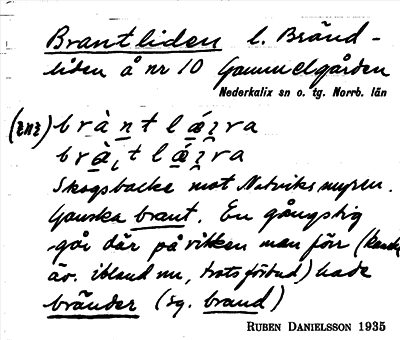 Brantliden l. Bränd-
liden å nr 10 Gammelgården
Nederkalix sn o. tg. Norrb. län
brànt l
br
Skogsbacke mot Natviksmyren.
Ganska brant. En gångstig
går där på vilken man förr (kanske
äv. ibland nu, trots förbud) hade
bränder (sg. brand)
RUBEN DANIELSSON 1935